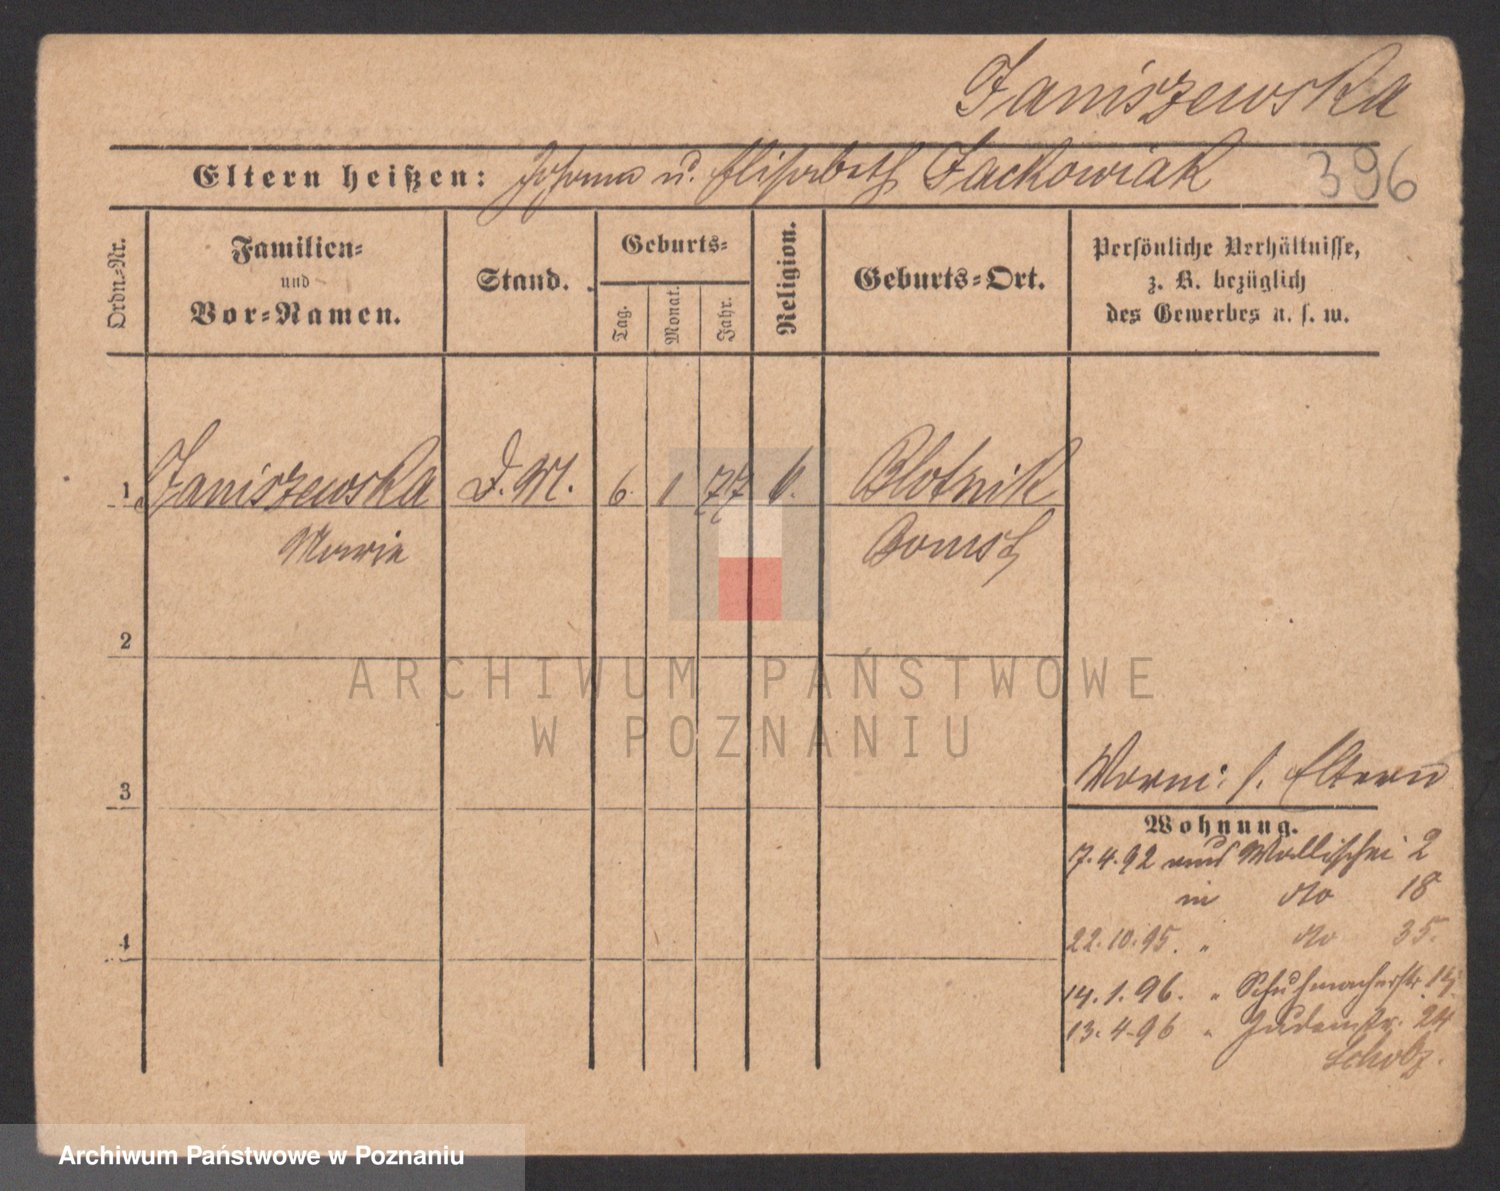 Janiszewska
Eltern heißen: Johann u. Elisabeth Jackowiak 396
Ordn.-Nr.
Familien- und Vor-Namen.
Stand.
Geburts-
Tag.
Monat.
Jahr.
Religion.
Geburts-Ort.
Persönliche Verhältnisse,
z. B. bezüglich
des Gewerbes u. s. w.
1 Janiszewska D. M. 6. 1 77 k. Blotnik
Marie Bomst
2
ARCHIWUM PAŃSTWOWE
W POZNANIU
3
Eltern
Wohnung.
7.4.92 aus Wallischei 2
in do 18
22.10.95. " do 35.
14.1.96. " Schuhmacherstr. 14
13.4.96 " Judenstr. 24
Scholz.
4
Archiwum Państwowe w Poznaniu